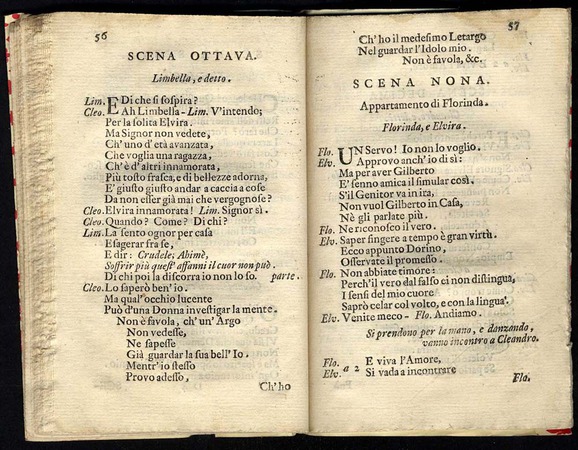 56
SCENA OTTAVA.
Limbella, e detto.
Lim. E Di che si sospira?
Cleo. Ah Limbella - Lim. V'intendo;
Per la solita Elvira.
Ma Signor non vedete,
Ch'uno d'età avanzata,
Che voglia una ragazza,
Ch'è d'altri innamorata,
Più tosto frasca, e di bellezze adorna,
E' giusto giusto andar a caccia a cose
Da non esser già mai che vergognose?
Cleo. Elvira innamorata! Lim. Signor sì.
Cleo. Quando? Come? Di chi?
Lim. La sento ognor per casa
Esagerar fra se,
E dir: Crudele; Ahimè,
Soffrir più quest' affanni il cuor non può.
Di chi poi la discorra io non lo so. parte.
Cleo. Lo saperò ben' io.
Ma qual' occhio lucente
Può d'una Donna investigar la mente.
Non è favola, ch' un' Argo
Non vedesse,
Ne sapesse
Già guardar la sua bell' Io.
Mentr' io stesso
Provo adesso,
Ch' ho
57
Ch' ho il medesimo Letargo
Nel guardar l'Idolo mio.
Non è favola, &c.
SCENA NONA.
Appartamento di Florinda.
Florinda, e Elvira.
Flo. UN Servo! Io non lo voglio.
Elv. Approvo anch' io di sì:
Ma per aver Gilberto
E' senno amica il simular così.
S'il Genitor va in ira,
Non vuol Gilberto in Casa,
Nè gli parlate più.
Flo. Ne riconosco il vero.
Elv. Saper fingere a tempo è gran virtù.
Ecco appunto Dorino,
Osservate il promesso.
Flo. Non abbiate timore:
Perch'il vero dal falso ei non distingua,
I sensi del mio cuore
Saprò celar col volto, e con la lingua.
Elv. Venite meco - Flo. Andiamo.
Si prendono per la mano, e danzando,
vanno incontro a Cleandro.
Flo. E viva l'Amore,
Elv. a 2 Si vada a incontrare
Flo.